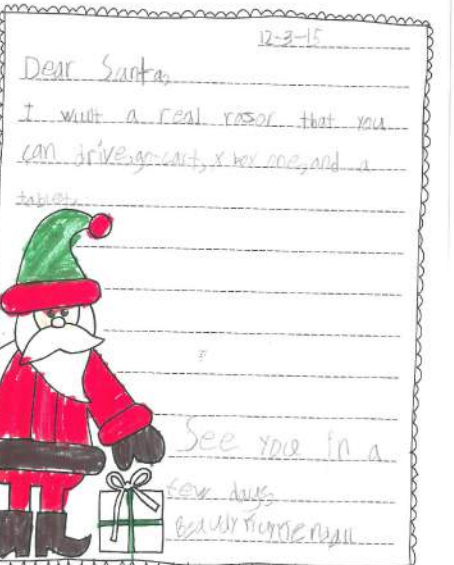 12-3-15
Dear Santa,
I wunt a real rasor that you
can drive, go-cart, x box one, and a
tablet.
See you in a
few days,